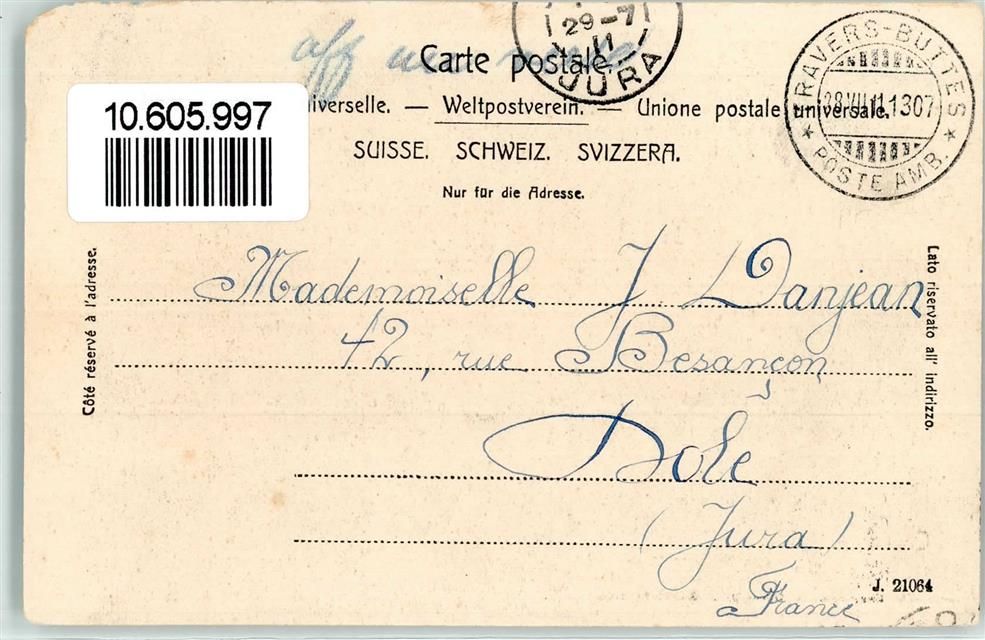 29-7
11
JURA
TRAVERS-BUTTES
28.VII.11.1307
POSTE AMB.
aff
Carte postale.
10.605.997
universelle. — Weltpostverein. — Unione postale universale.
SUISSE. SCHWEIZ. SVIZZERA.
Nur für die Adresse.
Côté réservé à l'adresse.
Lato riservato all' indirizzo.
Mademoiselle J. Danjean
42, rue Besançon
Dôle
(Jura)
France
J. 21064